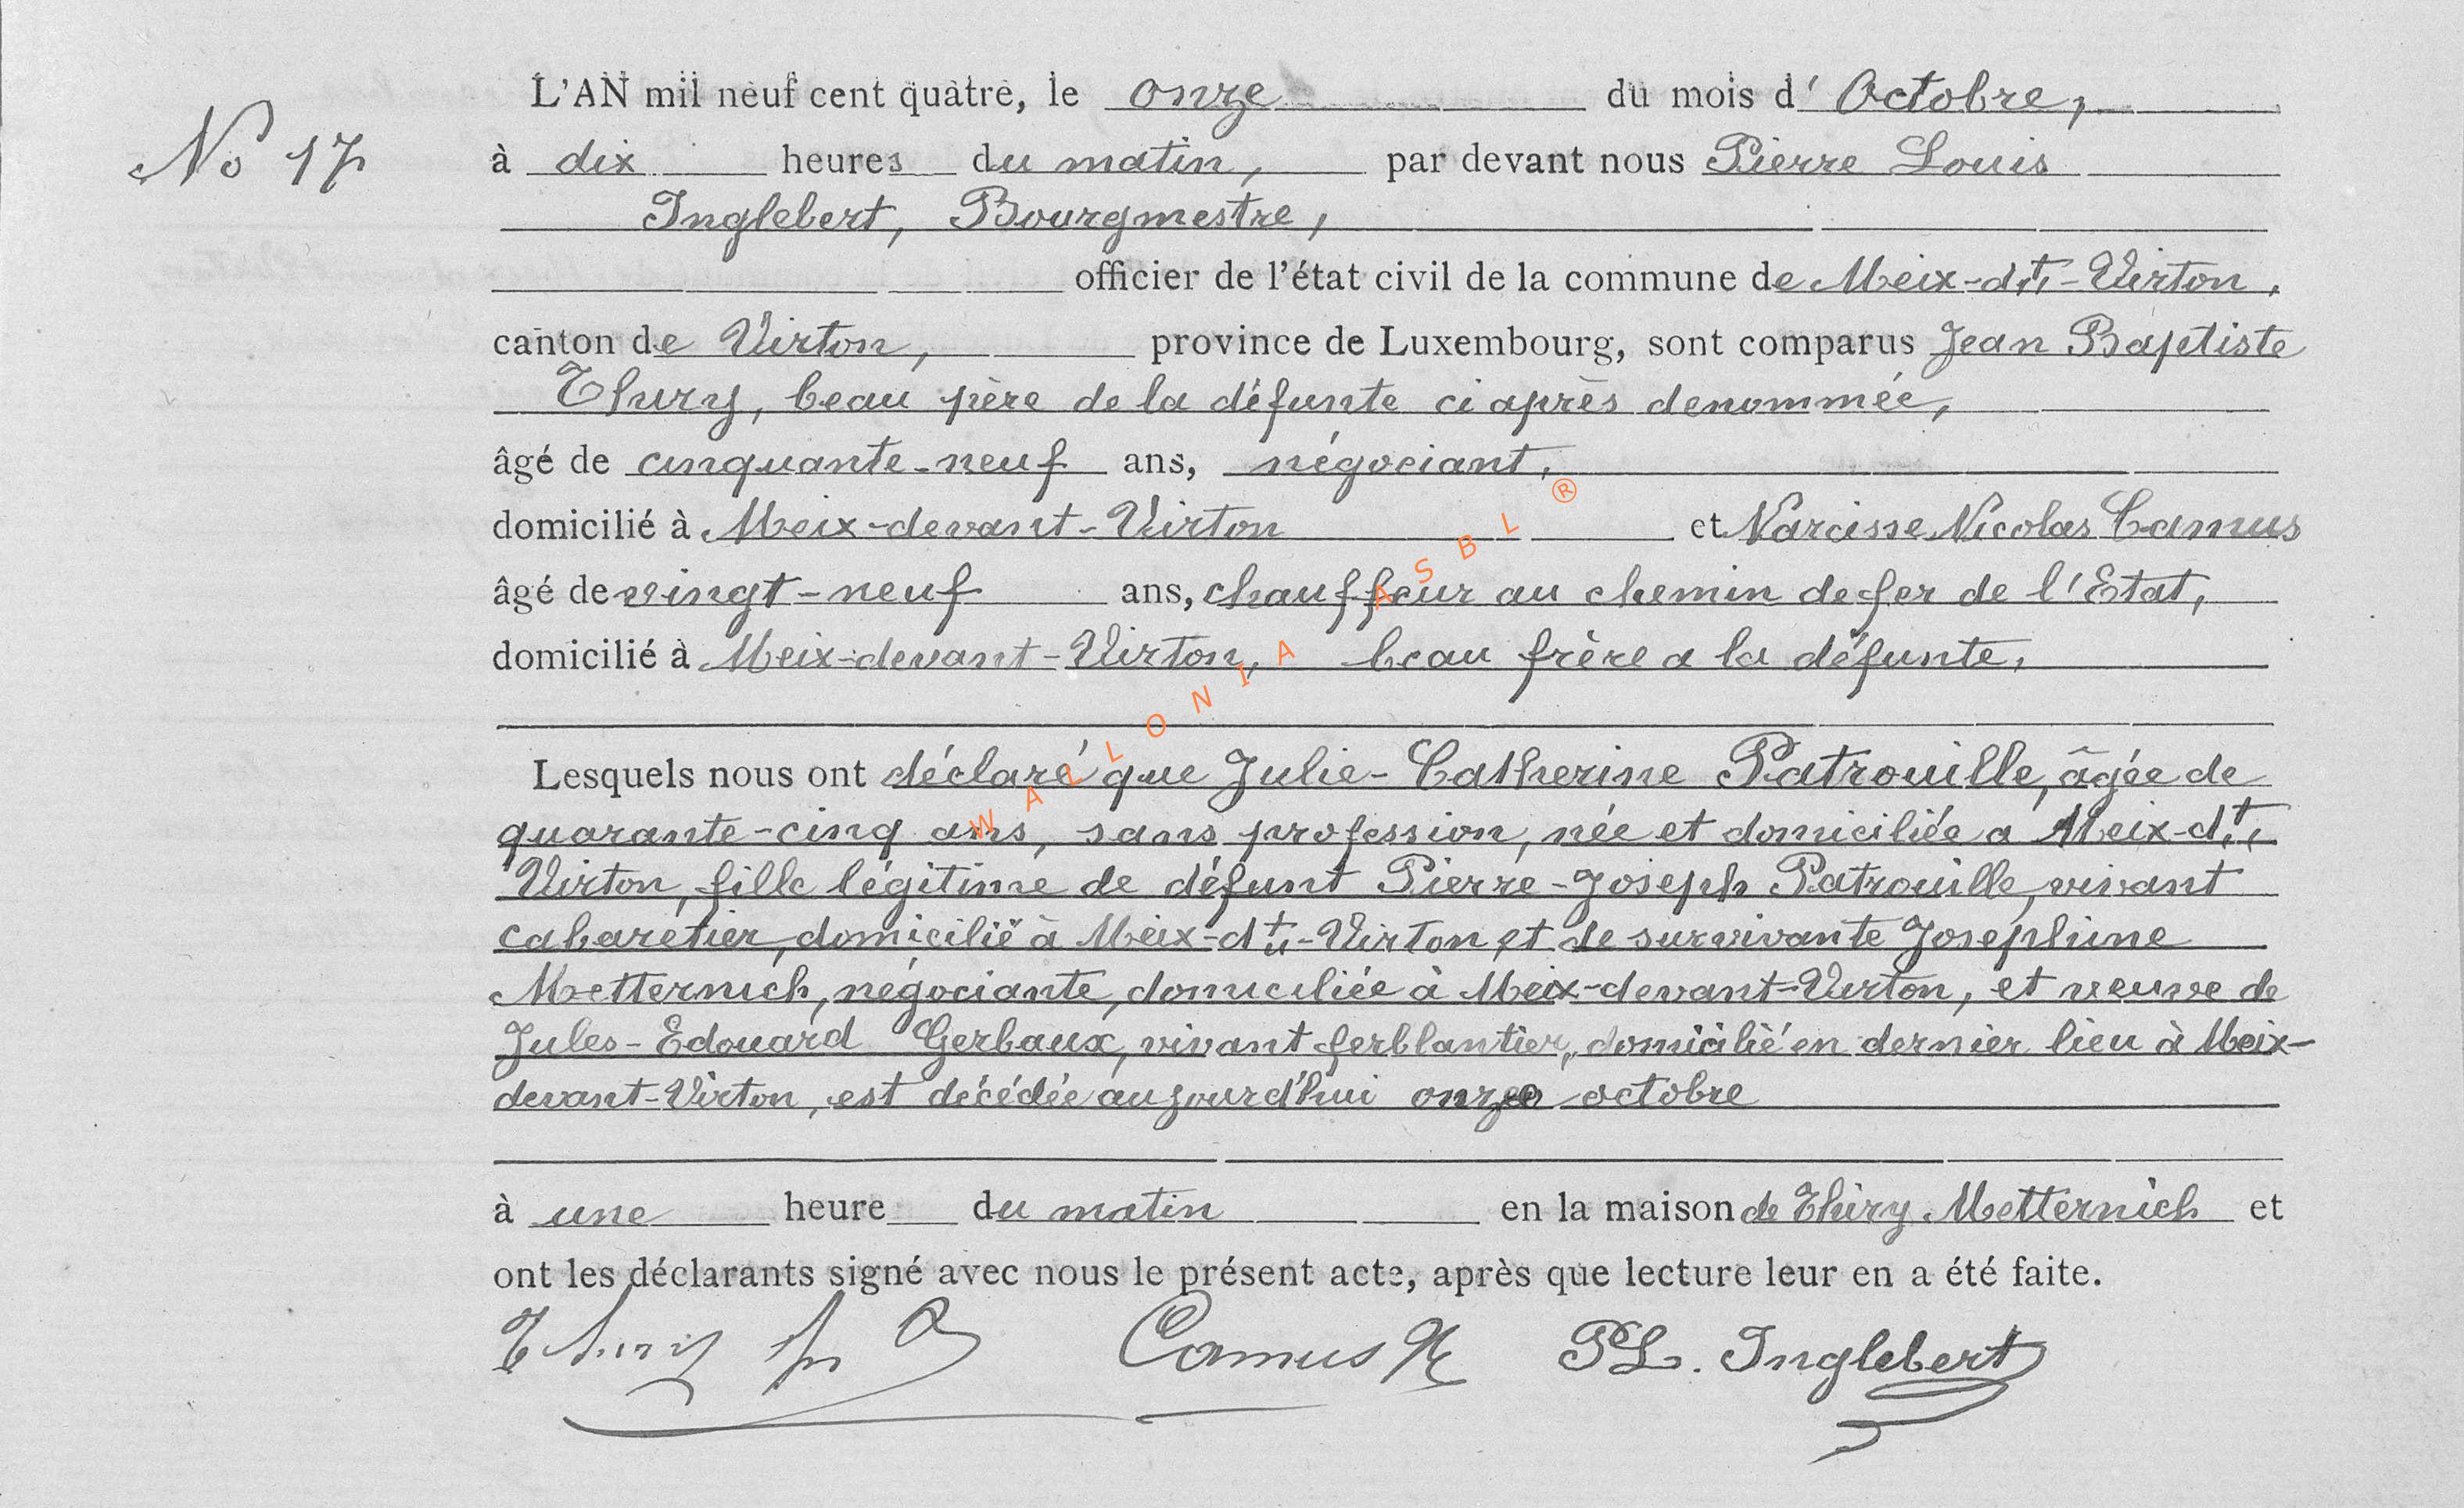 L'AN mil neuf cent quatre, le onze du mois d' Octobre,
No 17
à dix heures du matin, par devant nous Pierre Louis
Inglebert, Bourgmestre,
officier de l'état civil de la commune de Meix-dt-Virton,
canton de Virton, province de Luxembourg, sont comparus Jean Baptiste
Thiry, beau père de la défunte ci après denommée,
âgé de cinquante-neuf ans, négociant,
domicilié à Meix-devant-Virton et Narcisse Nicolas Camus
âgé de vingt-neuf ans, chauffeur au chemin de fer de l'Etat,
domicilié à Meix-devant-Virton, beau frère a la défunte,
Lesquels nous ont déclaré que Julie-Catherine Patrouille, âgée de
quarante-cinq ans, sans profession, née et domiciliée a Meix-dt
Virton, fille légitime de défunt Pierre-Joseph Patrouille, vivant
cabaretier, domicilié à Meix-dt-Virton, et de survivante Josephine
Metternich, négociante, domiciliée à Meix-devant-Virton, et veuve de
Jules-Edouard Gerbaux, vivant ferblantier, domicilié en dernier lieu à Meix-
devant-Virton, est décédée aujourd'hui onze octobre
à une heure du matin en la maison de Thiry Metternich et
ont les déclarants signé avec nous le présent acte, après que lecture leur en a été faite.
Thiry Camus N PL. Inglebert
WALLONIA ASBL ®